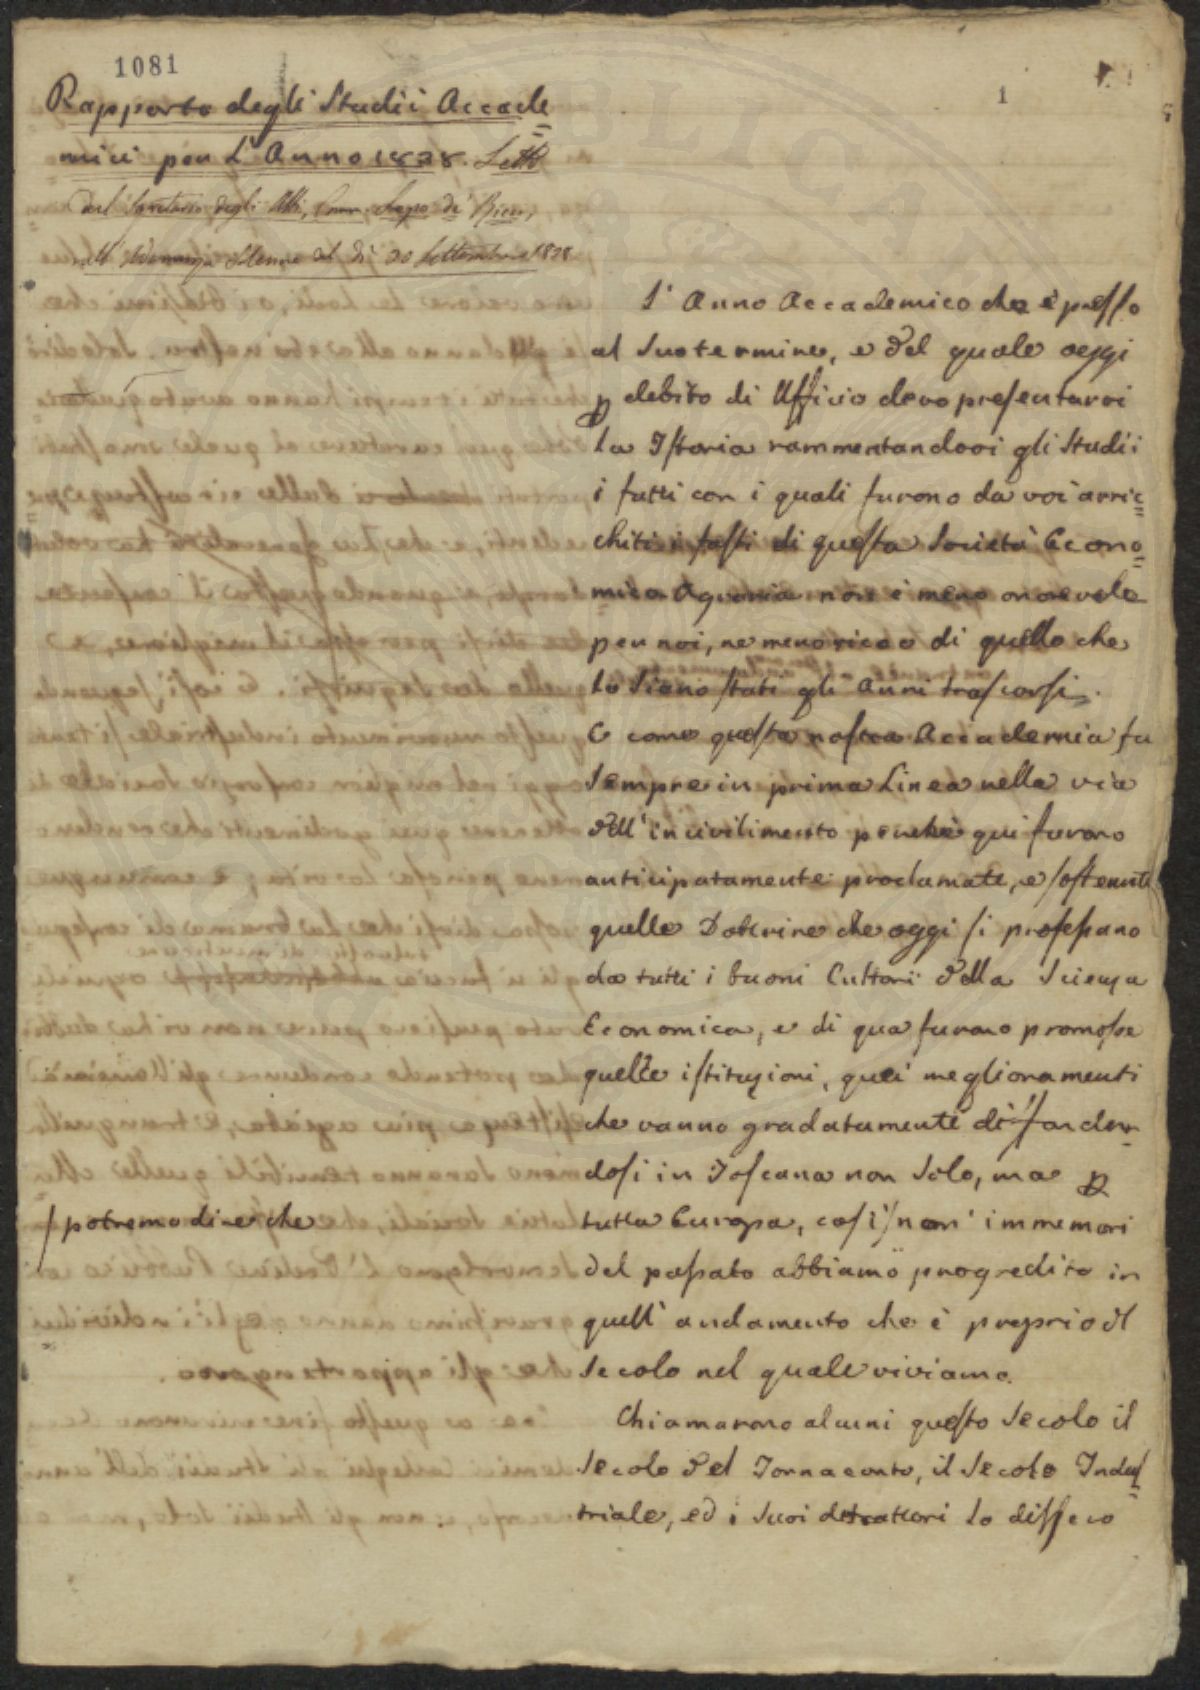 1081
1
Rapporto degli Studii Accade=
mici per L'Anno 1828. Letto
dal Segretario degli Atti, Cav. Lapo de' Ricci,
nell'Adunanza Solenne del dì 20 Settembre 1828
L'Anno Accademico che è presso
al suo termine, e del quale oggi
p debito di Uffizio devo presentarvi
la Istoria rammentandovi gli Studii
i fatti con i quali furono da voi arric=
chiti i fasti di questa Società Econo=
mico Agraria non è meno onorevole
per noi, ne meno ricco di quello che
lo Siano stati gli Anni trascorsi.
E come questa nostra Accademia fu
Sempre in prima Linea nella via
dell'incivilimento perchè qui furono
anticipatamente proclamate, e sostenute
quelle Dottrine che oggi si professano
da tutti i buoni Cultori della Scienza
Economica, e di qua furono promosse
quelle istituzioni, quei miglioramenti
che vanno gradatamente diffonden=
dosi in Toscana non Solo, ma p
tutta Europa, così / non immemori
/ potremo dire che
del passato abbiamo progredito in
quell'andamento che è proprio del
Secolo nel quale viviamo.
Chiamarono alcuni questo Secolo il
Secolo del Tornaconto, il Secolo Indus=
triale, ed i Suoi detrattori lo dissero